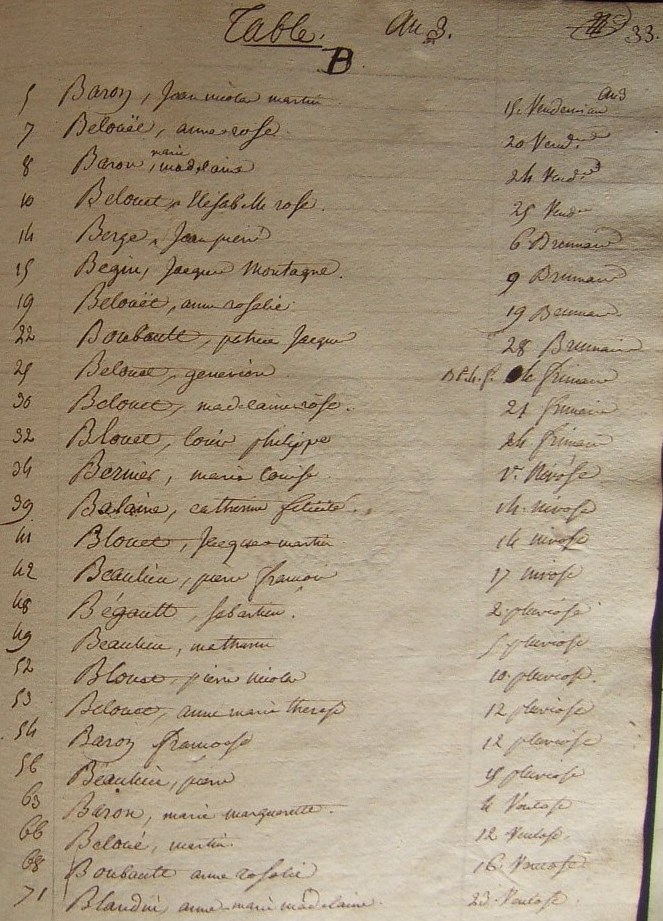 Table. An 3. 33.
B
5 Baron, Jean nicolas martin 15. Vendemiair an 3
7 Belouët, anne rose 20 Vend.re
8 Baron, marie madelaine 24 Vend.re
10 Belouet, Elisabeth rose. 25 Vend.re
14 Berge, Jean pierre 6 Brumaire
15 Begin, Jacques Montagne. 9 Brumaire
19 Belouët, anne rosalie 19 Brumaire
22 Boubault, Jacques 28 Brumaire
25 Belouet, genevieve 4 frimaire
30 Belouet, madelaine rose. 21 frimaire
32 Blouet, louis philippe 24 frimaire
34 Bernier, marie louise 1.er Nivôse
39 Balaine, catherine felicité. 14 nivose
41 Blouet, Jacques martin 14 nivose
42 Beaulieu, pierre francois 17 nivose
48 Bégault, sebastien. 2 pluviose
49 Beaulieu, mathurin 5 pluviose
52 Blouet, pierre nicolas 10 pluviose.
53 Belouet, anne marie therese 12 pluviose
54 Baron francoise 12 pluviose
56 Beaulieu, pierre 15 pluviose
63 Baron, marie marguerite. 4 Ventose
66 Beloué, martin. 12 Ventose.
68 Boubault anne rosalie 16 Ventose
71 Blandin, anne marie madelaine. 23 Ventose